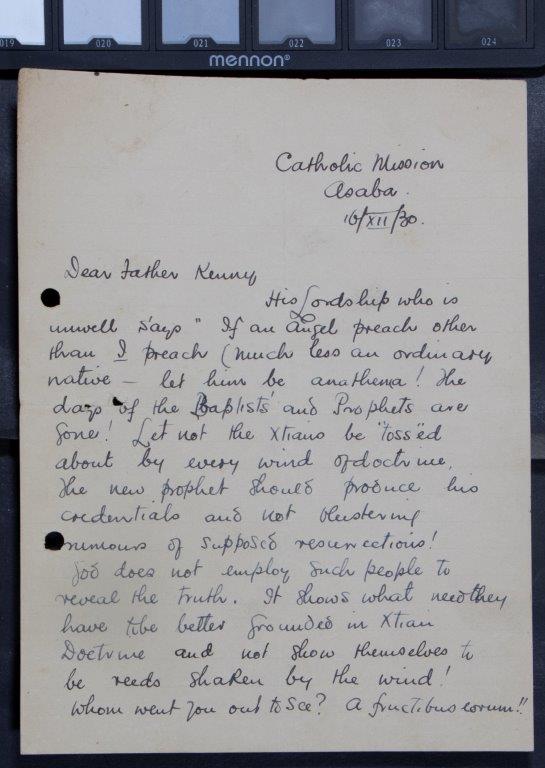 019 020 021 022 023 024
mennon®
Catholic Mission
Asaba.
16/XII/30.
Dear Father Kenny
His Lordship who is
unwell says " If an Angel preach other
than I preach (much less an ordinary
native — let him be anathema! The
days of the Baptists and Prophets are
gone! Let not the Xtians be "toss'ed
about by every wind of doctrine.
The new prophet should produce his
credentials and not blustering
rumours of supposed resurrections!
God does not employ such people to
reveal the truth. It shows what need they
have to be better grounded in Xtian
Doctrine and not show themselves to
be reeds shaken by the wind!
Whom went you out to see? A fructibus eorum!!